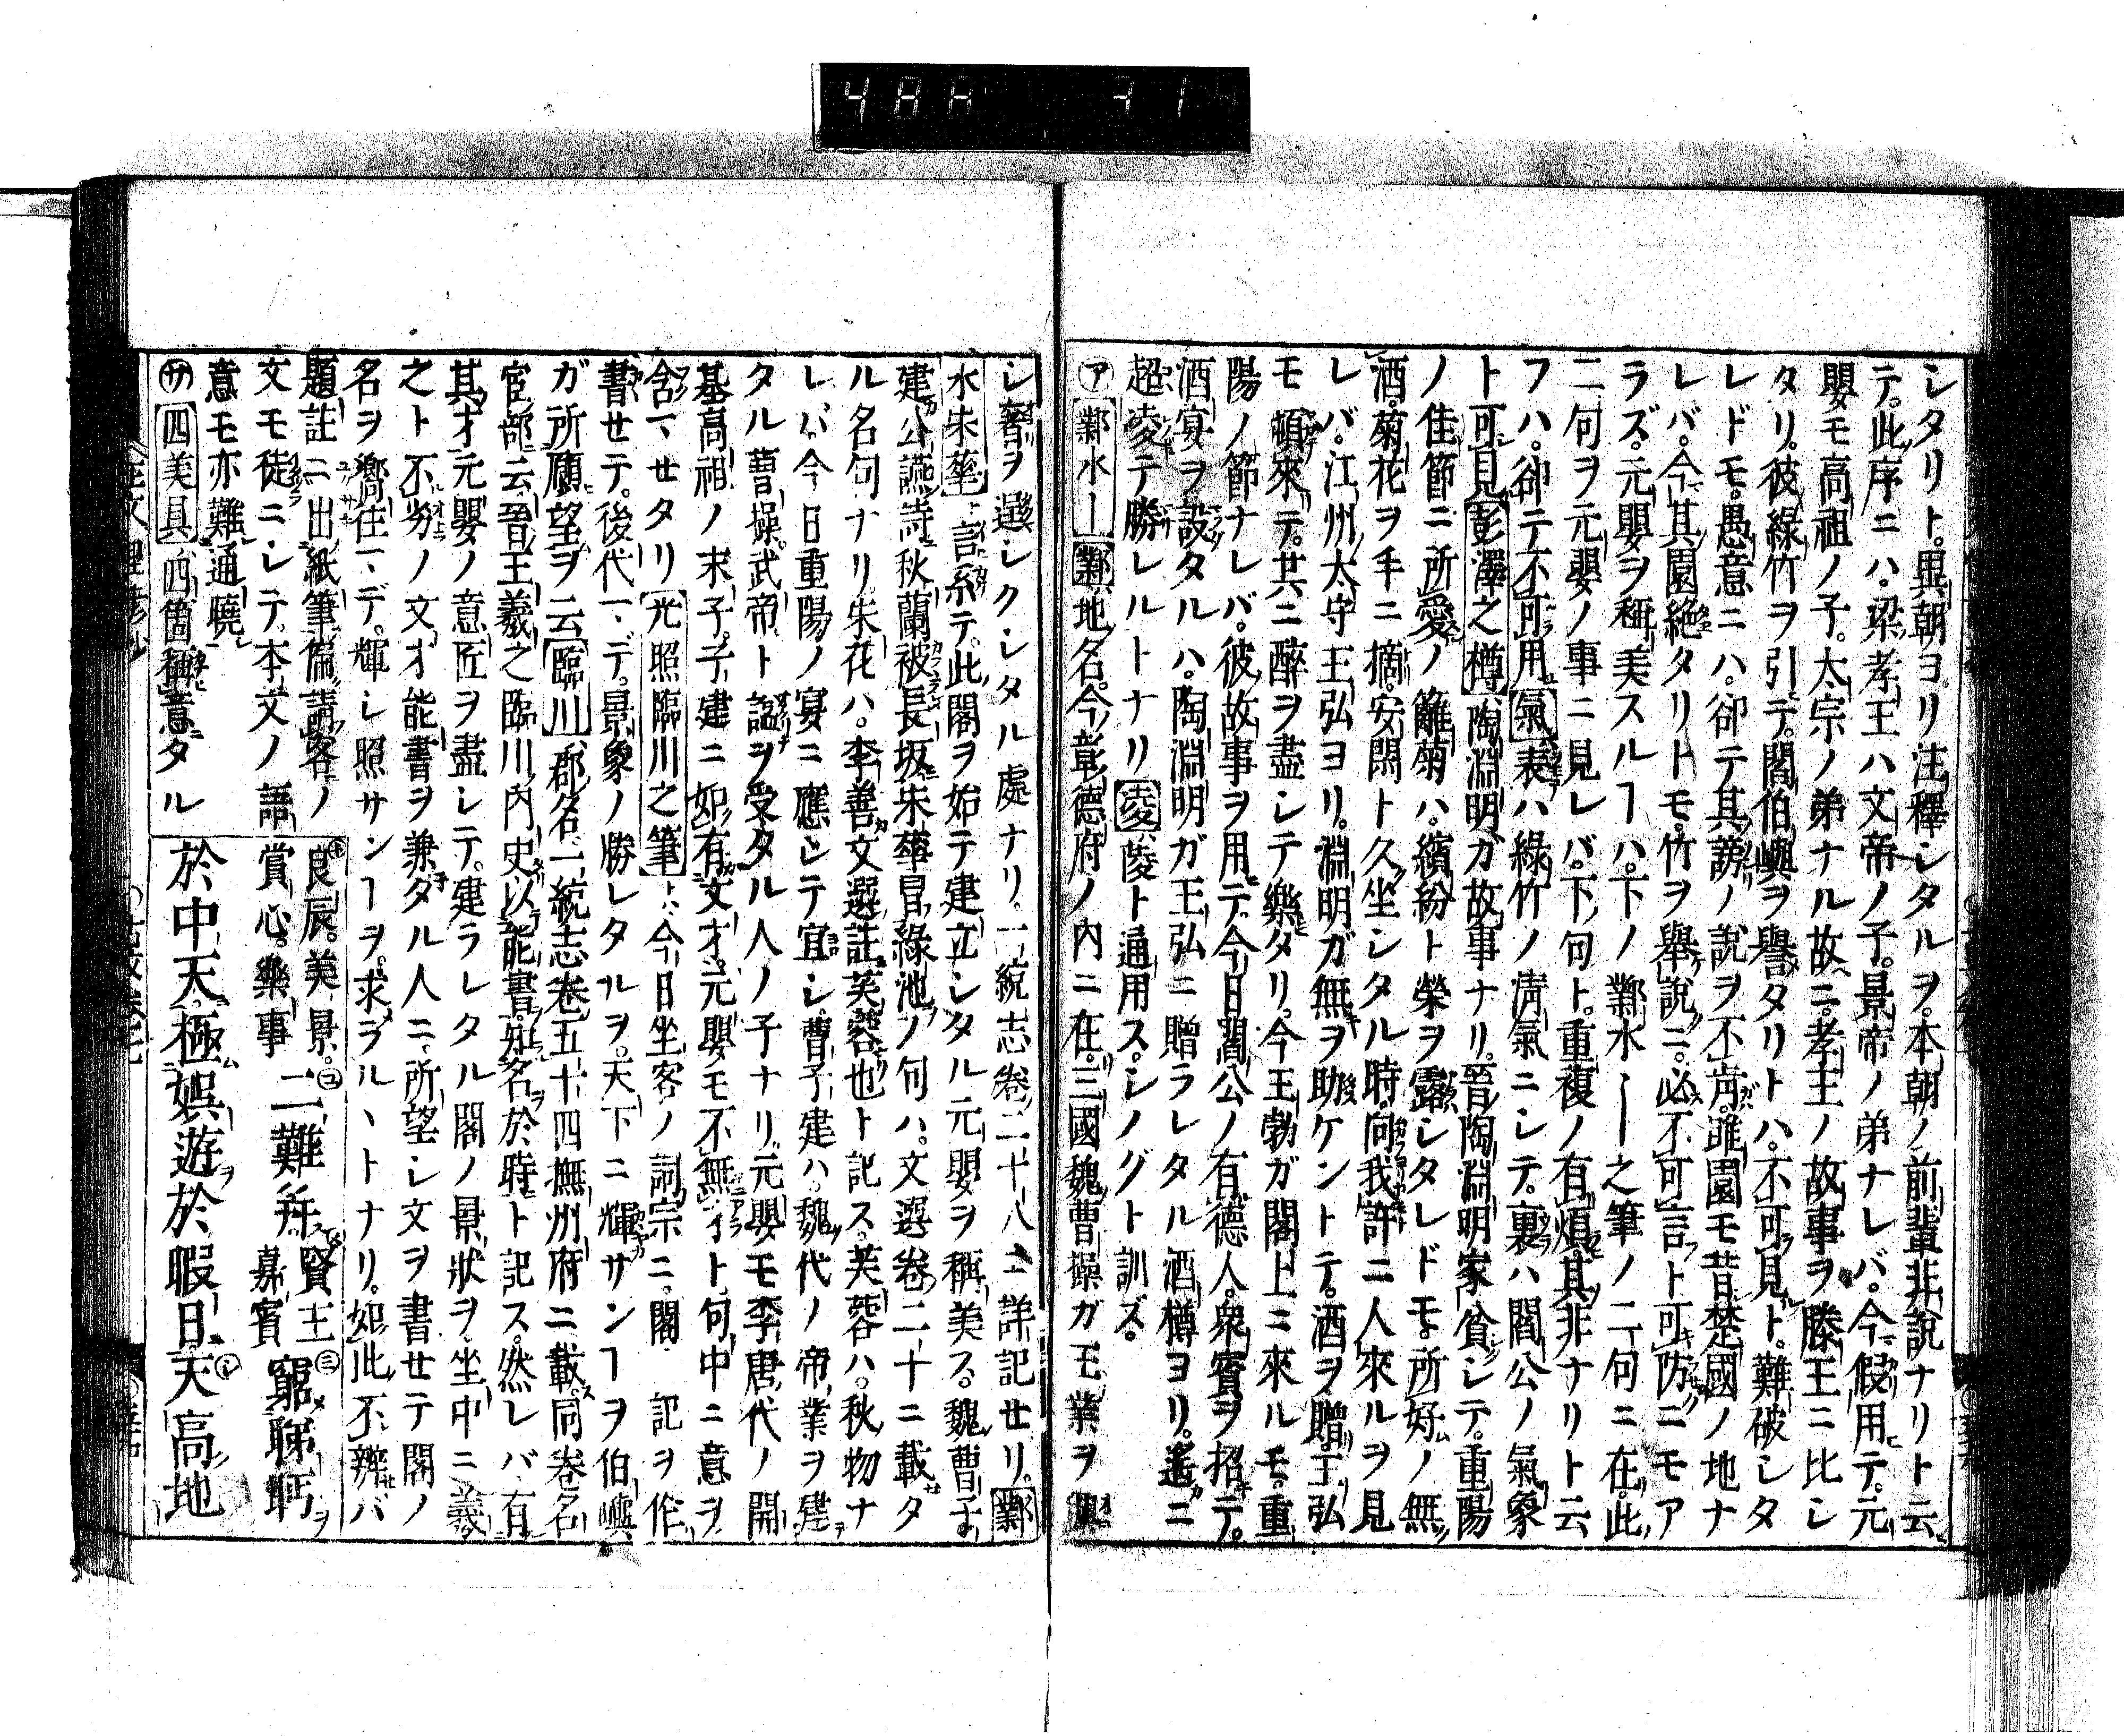 シタリト。異朝ヨリ注釋シタルヲ。本朝ノ前輩非說ナリト云
テ。此序ニハ梁孝王ハ文帝ノ子。景帝ノ弟ナレバ。今假用テ。元
嬰モ高祖ノ子。太宗ノ弟ナル故ニ。孝王ノ故事ヲ滕王ニ比シ
タリ。彼綠竹ヲ引デ。閻伯嶼ヲ譽タリトハ。不可見ト。難破シタ
レドモ。愚意ニハ。卻テ其謗ノ說ヲ不肯。睢園モ昔楚國ノ地ナ
レバ。今其園絶タリトモ。竹ヲ舉說ニ。必不可言ト可防ニモア
ラズ。元嬰ヲ稱美スルヿハ。下ノ鄴水ー之筆ノ二句ニ在。此
二句ヲ元嬰ノ事ニ見レバ。下句ト。重複ノ有煩。其非ナリト云
フハ。卻テ不可用氣表ハ綠竹ノ淸氣ニシテ。裏ハ閻公ノ氣象
ト可見彭澤之樽陶淵明ガ故事ナリ。晉陶淵明家貧シテ。重陽
ノ佳節ニ所愛ノ籬菊ハ。繽紛ト榮ヲ露シタレドモ。所好ノ無
酒。菊花ヲ手ニ摘。安閑ト久坐シタル時。向我許ニ人來ルヲ見
レバ。江州太守王弘ヨリ。淵明ガ無ヲ助ケントテ。酒ヲ贈。王弘
モ頓來テ。共ニ醉ヲ盡シテ樂タリ。今王勃ガ閣上ニ來ルモ。重
陽ノ節ナレバ。彼故事ヲ用デ。今日閻公ノ有德人。衆賓ヲ招テ。
酒宴ヲ設タルハ。陶淵明ガ王弘ニ贈ラレタル酒樽ヨリ。遙ニ
超凌テ勝レルトナリ凌蔆ト通用ス。シノグト訓ズ。
㋐鄴水ー鄴地名。今彰德府ノ內ニ在。三國魏曹操ガ王業ヲ
シ謇ヲ選レクレタル處ナリ。一統志卷二十八ニ詳記セリ。鄴
水朱華ト言系テ。此閣ヲ始テ建立シタル元嬰ヲ稱美ス。魏曹子
建公讌詩秋蘭被長坂。朱華冒綠池ノ句ハ。文選卷二十ニ載タ
ル名句ナリ。朱花ハ。李善文選註芙蓉也ト記ス。芙蓉ハ。秋物ナ
レバ。今日重陽ノ宴ニ應シテ宜シ。曹子建ハ。魏代ノ帝業ヲ建
タル曹操。武帝ト諡ヲ受タル人ノ子ナリ。元嬰モ李唐代ノ開
基高祖ノ末子。子建ニ如有文才。元嬰モ不無ト句中ニ意ヲ
含マセタリ光照臨川之筆ト。今日坐客ノ詞宗ニ。閣 記ヲ作
書セテ。後代マデ。景象ノ勝レタルヲ。天下ニ輝サンヿヲ伯嶼
ガ所願望ヲ云臨川郡名。一統志卷五十四撫州府ニ載。同卷名
宦部云。晉王羲之臨川內史。以能書。知名於時ト記ス。然レバ有
其才元嬰ノ意匠ヲ盡シテ。建ラレタル閣ノ景狀ヲ。坐中ニ羲
之ト不劣ノ文才能書ヲ兼タル人ニ。所望シ文ヲ書セテ閣ノ
名ヲ嚮往マデ。輝シ照サンヿヲ。求ヲル丶トナリ。如此不辨バ
題註ニ出紙筆徧請客ノ
文モ徒ニシテ。本文ノ語
意モ亦難通曉
㋚四美具四箇稱意タル
良辰。美景。
賞心。樂事
二難并
賢王
嘉賓
窮睇眄
於中天。極娛遊於暇日。天高地